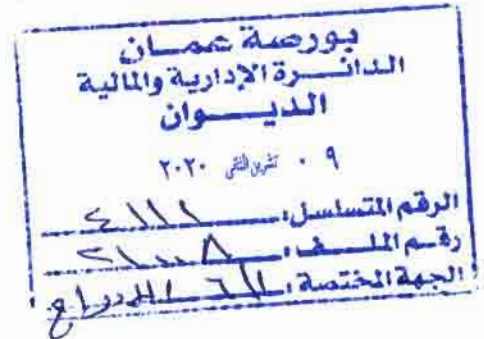 بورصة عمان
الدائرة الإدارية والمالية
الديوان
٠٩ تشرين الثاني ٢٠٢٠
الرقم المتسلسل: ٤١١١
رقم الملف:
الجهة المختصة: الإدراج